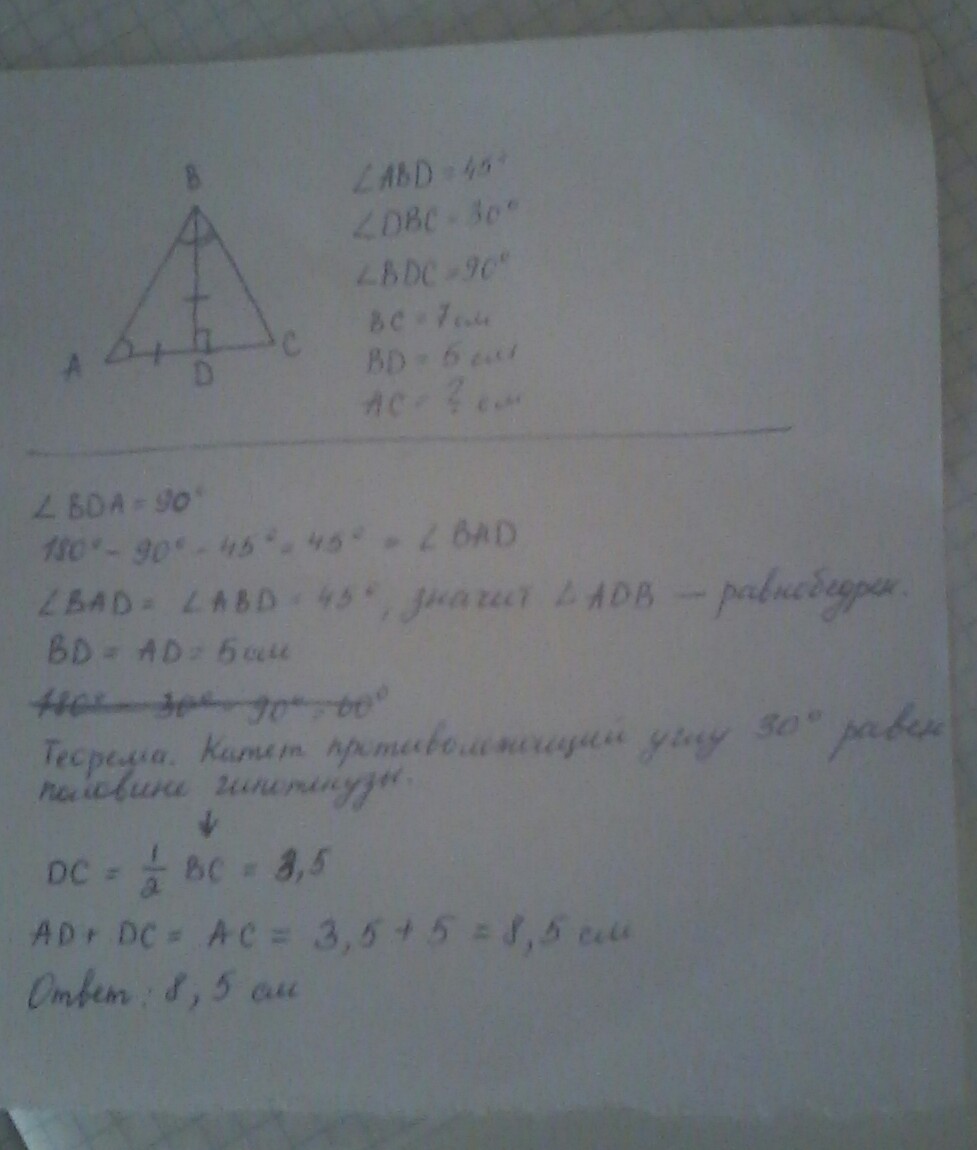 B
A
D
C
∠ABD = 45°
∠DBC = 30°
∠BDC = 90°
BC = 7 см
BD = 5 см
AC = ? см
∠BDA = 90°
180° - 90° - 45° = 45° = ∠BAD
∠BAD = ∠ABD = 45°, значит ∠ADB — равнобедрен.
BD = AD = 5 см
180° - 30° - 90° = 60°
Теорема. Катет противолежащий углу 30° равен
половине гипотенузы.
↓
DC = 1/2 BC = 3,5
AD + DC = AC = 3,5 + 5 = 8,5 см
Ответ: 8,5 см